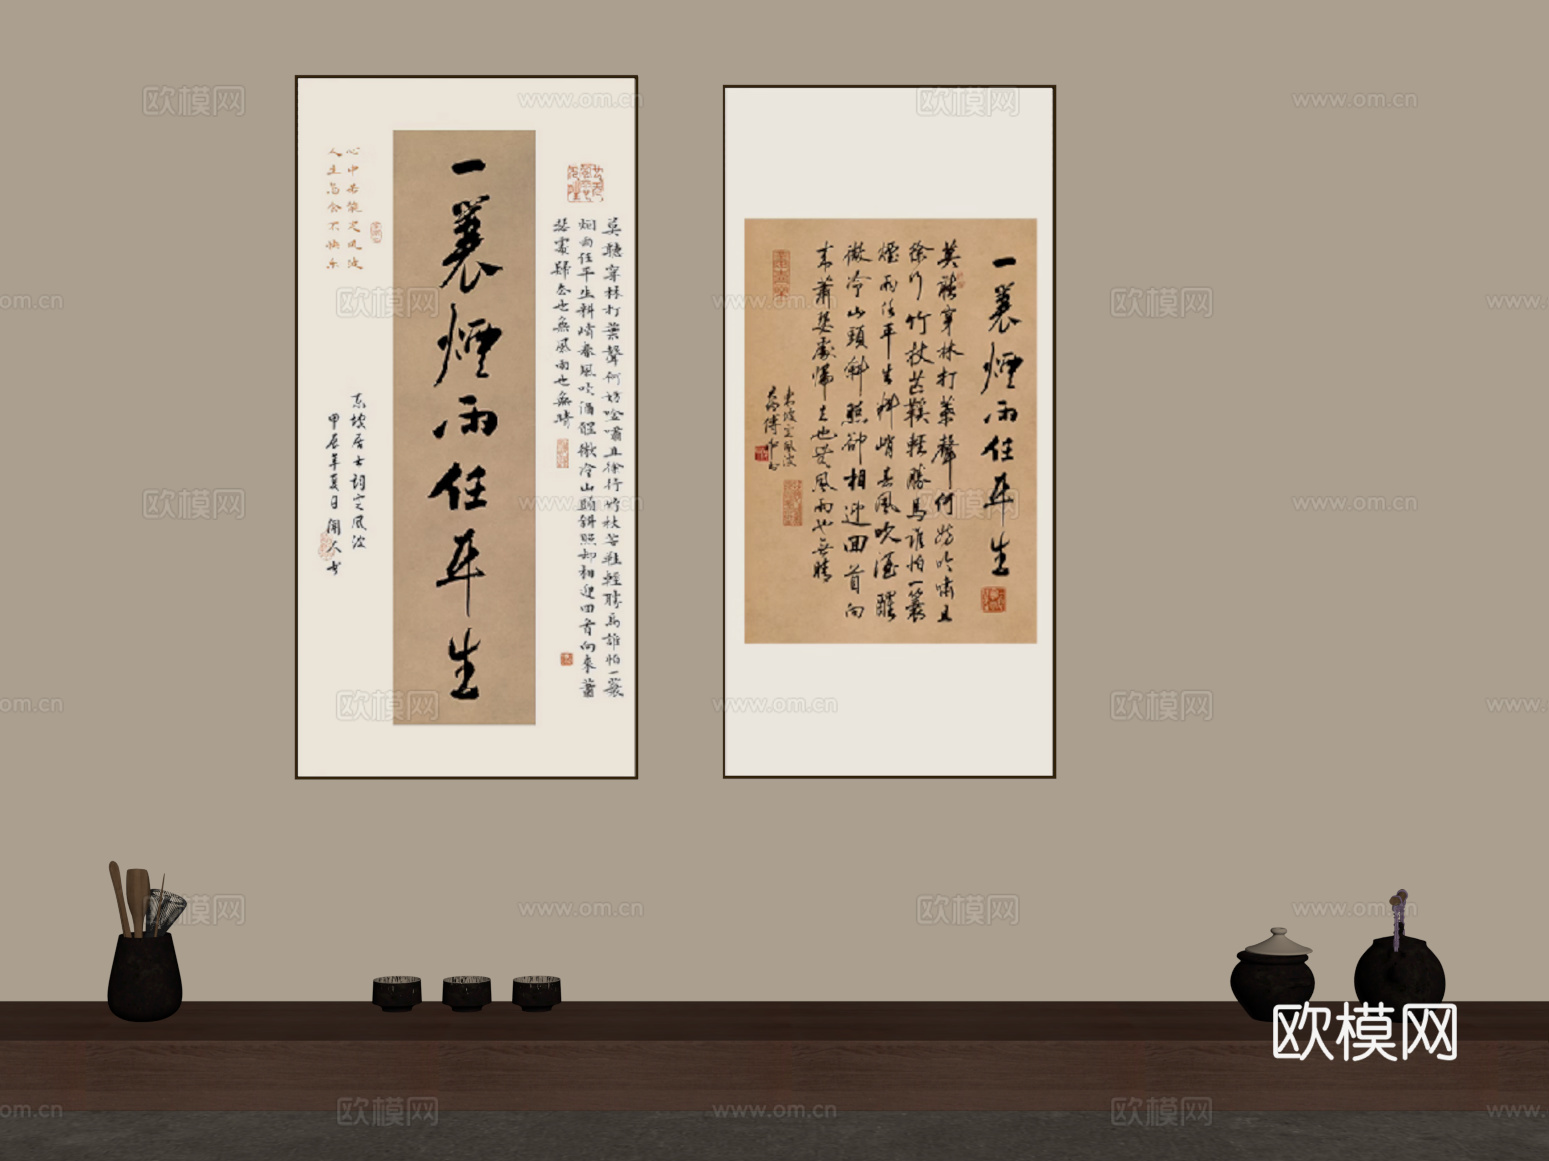 一蓑煙雨任平生
莫聽穿林打葉聲何妨吟嘯且徐行竹杖芒鞋輕勝馬誰怕一蓑
烟雨任平生料峭春風吹酒醒微冷山頭斜照却相迎回首向來蕭
瑟處歸去也無風雨也無晴
心中若能定風波
人生何會不快樂
東坡居士詞定風波
甲辰年夏日
一蓑煙雨任平生
莫聽穿林打葉聲何妨吟嘯且
徐行竹杖芒鞋輕勝馬誰怕一蓑
煙雨任平生料峭春風吹酒醒
微冷山頭斜照卻相迎回首向
來蕭瑟處歸去也無風雨也無晴
東坡定風波
欧模网
www.om.cn